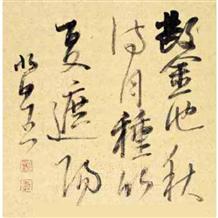 鑿池秋
待月種竹
夏遮陽